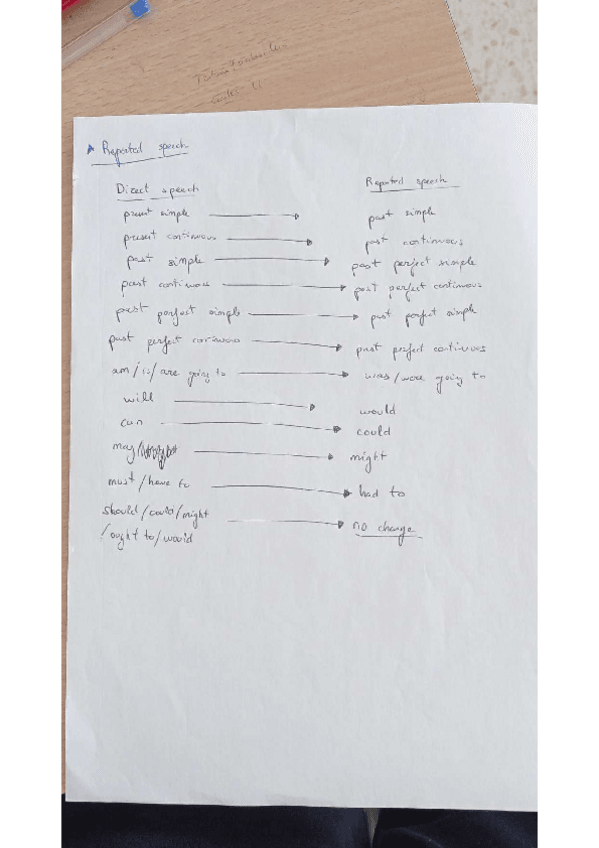 Reported speech
Direct speech Reported speech
present simple → past simple
present continuous → past continuous
past simple → past perfect simple
past continuous → past perfect continuous
past perfect simple → past perfect simple
past perfect continuous → past perfect continuous
am/is/are going to → was/were going to
will → would
can → could
may/ → might
must/have to → had to
should/could/might
/ought to/would → no change